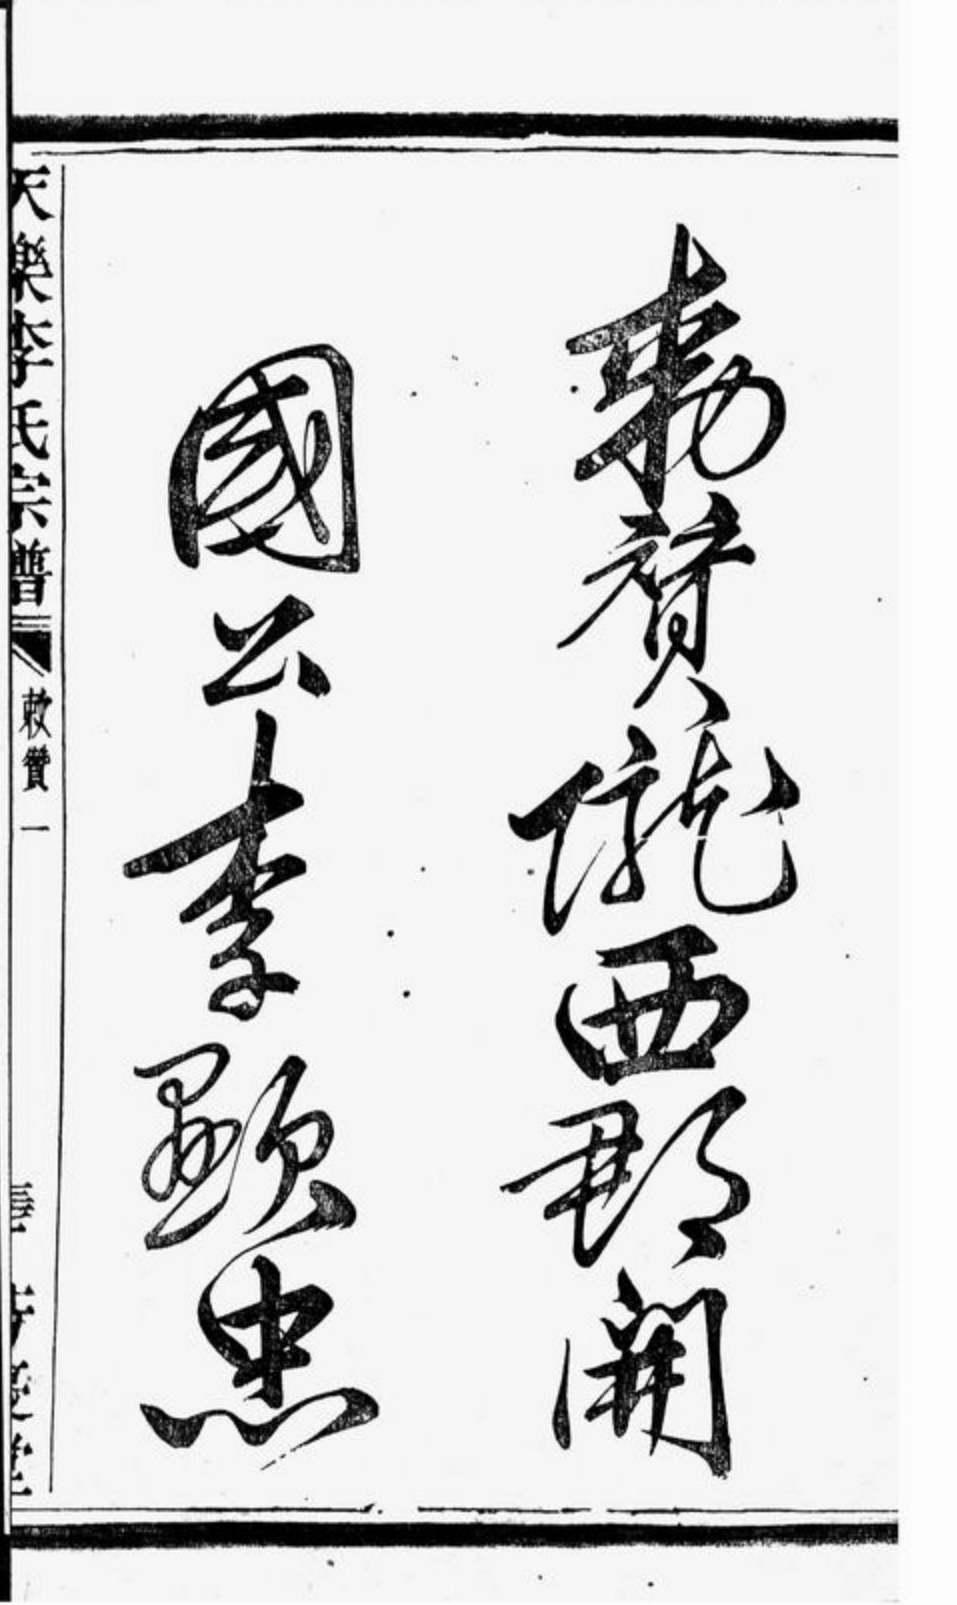 勅贊隴西郡開
國公李顯忠
天樂李氏宗譜
敕贊 一